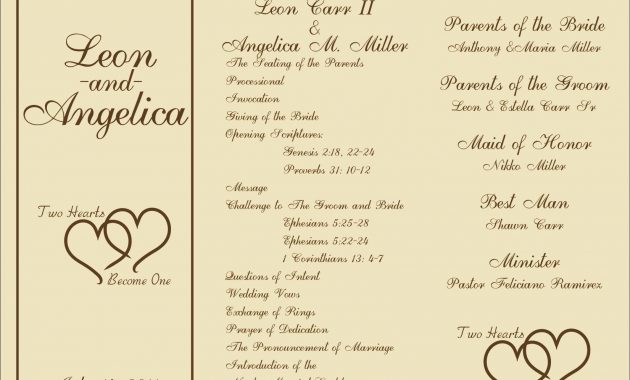 Leon
-and-
Angelica
Two Hearts
Become One
Leon Carr II
&
Angelica M. Miller
The Seating of the Parents
Processional
Invocation
Giving of the Bride
Opening Scriptures:
Genesis 2:18, 22-24
Proverbs 31: 10-12
Message
Challenge to The Groom and Bride
Ephesians 5:25-28
Ephesians 5:22-24
1 Corinthians 13: 4-7
Questions of Intent
Wedding Vows
Exchange of Rings
Prayer of Dedication
The Pronouncement of Marriage
Introduction of the
Parents of the Bride
Anthony &Maria Miller
Parents of the Groom
Leon & Estella Carr Sr
Maid of Honor
Nikko Miller
Best Man
Shawn Carr
Minister
Pastor Feliciano Ramirez
Two Hearts